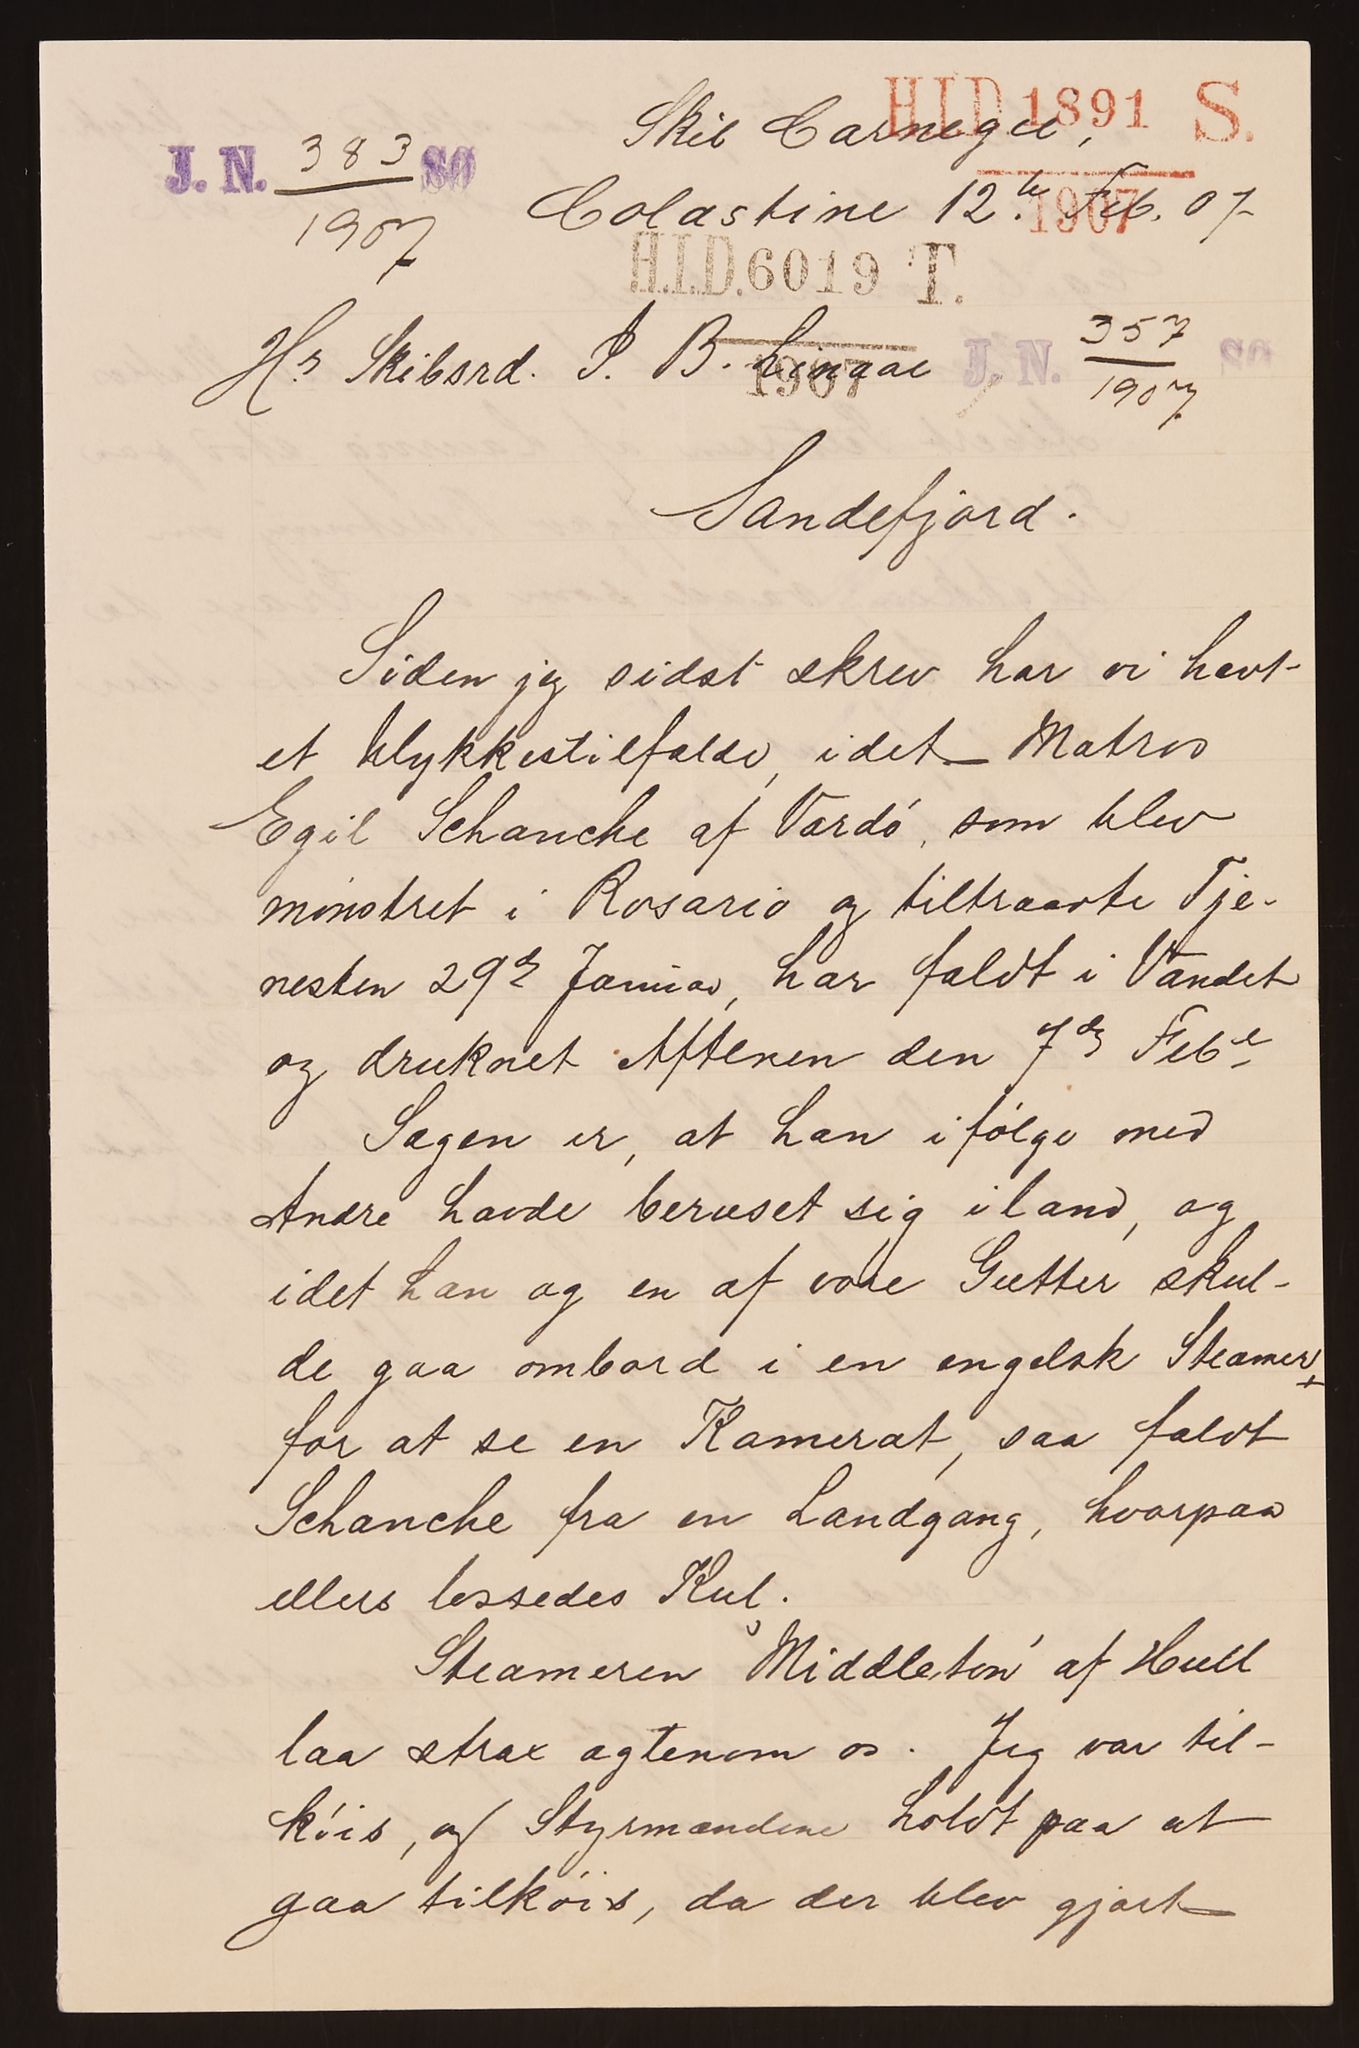 H.I.D. 1891 S.
1907
J. N. 383 SØ
1907
Skib Carnegie,
Colastine 12te Feb. 07
H.I.D. 6019 T.
1907
Hr Skibsrd. P. B. Lingaae
J. N. 357 SØ
1907
Sandefjord.
Siden jeg sidst skrev har vi havt
et Ulykkestilfælde, idet Matros
Egil Schanche af Vardö, som blev
mönstret i Rosario og tiltraadte Tje-
nesten 29de Januar, har faldt i Vandet
og druknet Aftenen den 7de Feb.
Sagen er, at han ifölge med
Andre havde beruset sig iland, og
idet han og en af vore Gutter skul-
de gaa ombord i en engelsk Steamer
for at se en Kamerat, saa faldt
Schanche fra en Landgang, hvorpaa
ellers lossedes Kul.
Steameren "Middleton" af Hull
laa strax agtenom os. Jeg var til-
köis, og Styrmændene holdt paa at
gaa tilköis, da der blev gjort